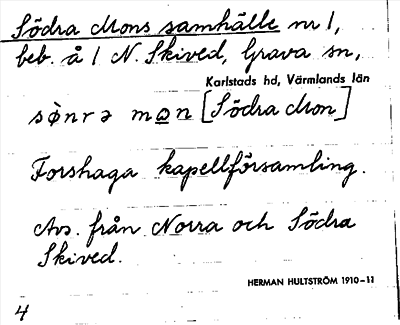 Södra Mons samhälle nr 1,
beb. å 1 N. Skived, Grava sn,
Karlstads hd, Värmlands län
sònrə mo̲n [Södra Mon]
Forshaga kapellförsamling.
Avs. från Norra och Södra
Skived.
HERMAN HULTSTRÖM 1910-11
4